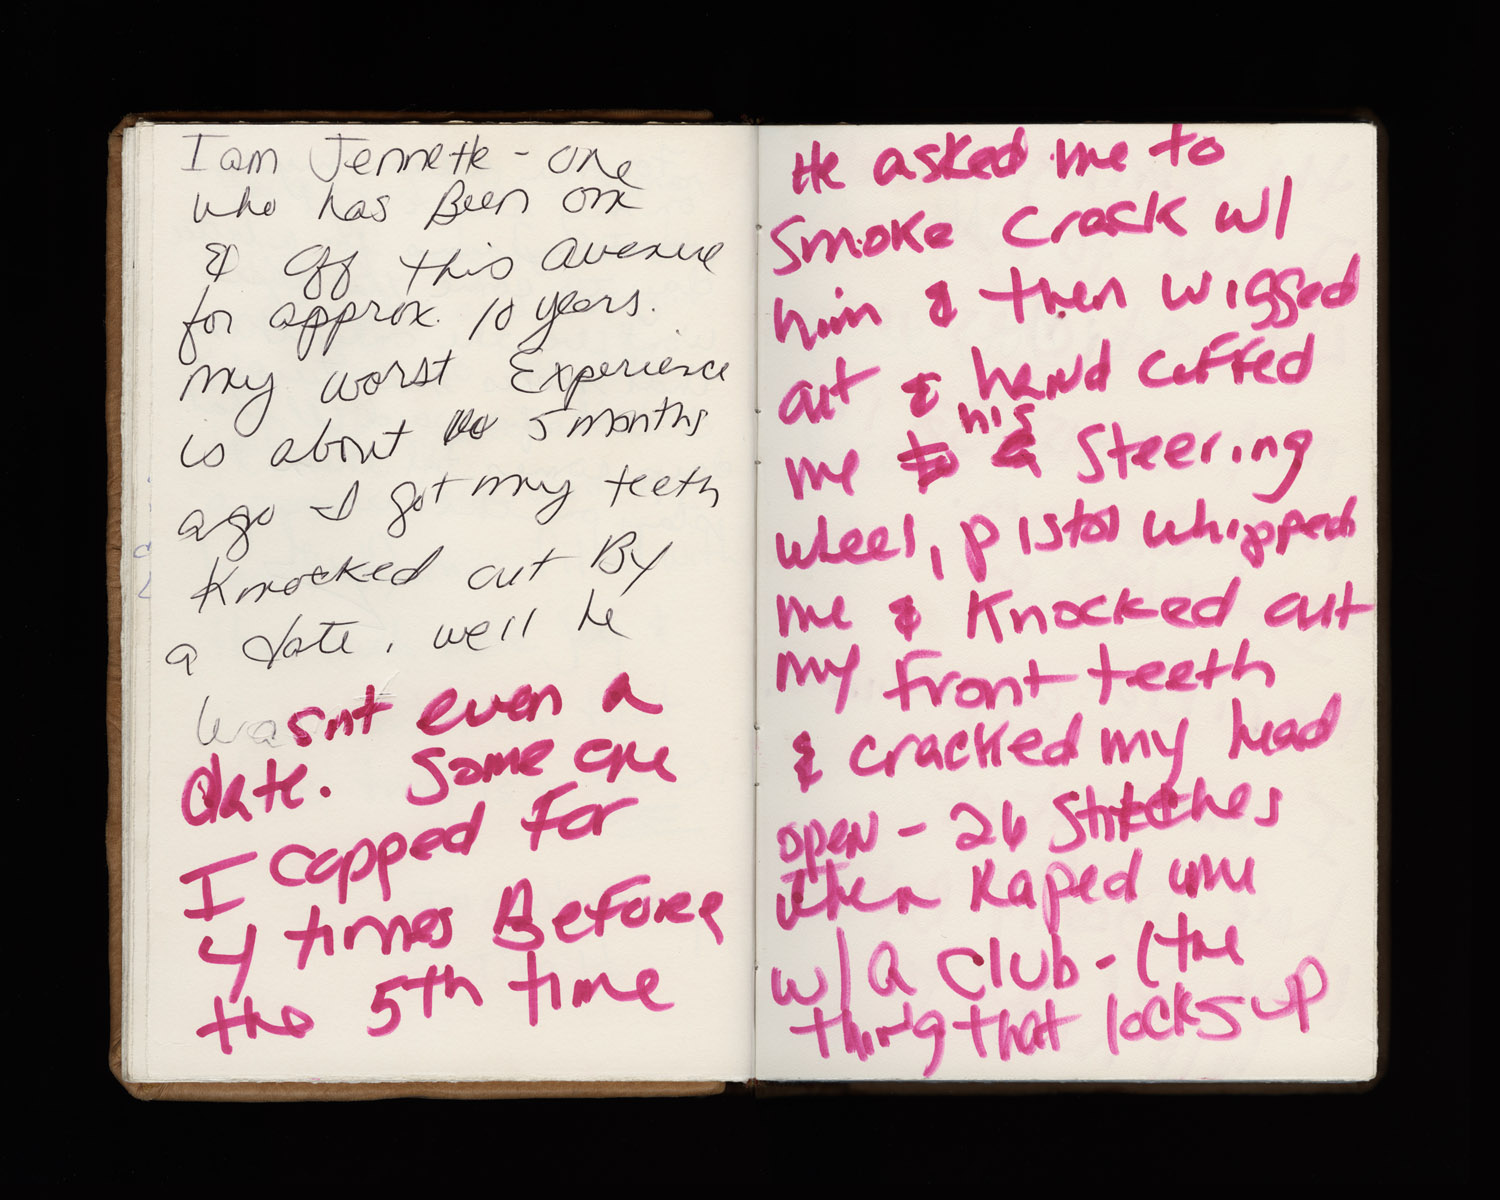 I am Jennette - one
who has Been on
& off this avenue
for approx. 10 years.
my worst Experience
is about 5 months
ago I got my teeth
Knocked out By
a date, well he
wasnt even a
date. Some one
I copped For
4 times Before
the 5th time
He asked me to
Smoke crack w/
him & then wigged
out & hand cuffed
me to his Steering
wheel, pistol whipped
me & Knocked out
my front teeth
& cracked my head
open - 26 Stitches
then Raped me
w/ a club - (the
thing that locks up